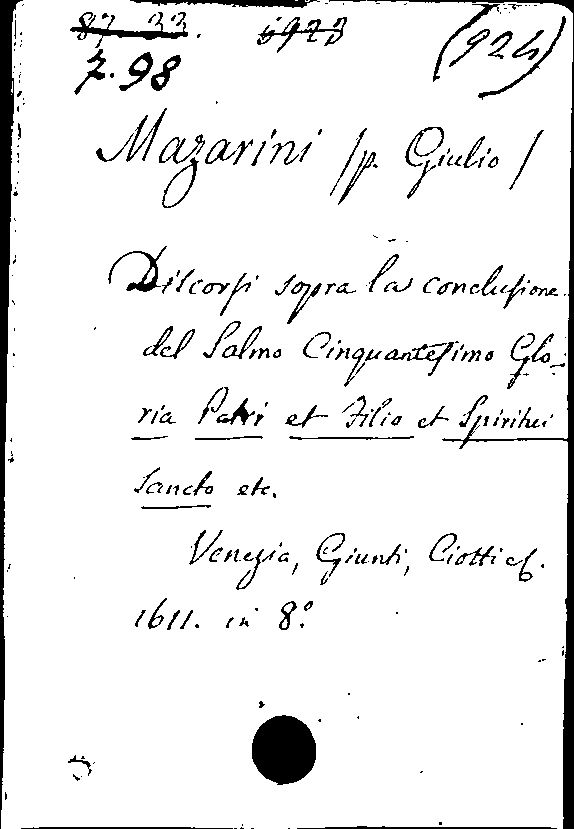 87 33. 5923 (924)
7.98
Mazarini /p. Giulio/
Discorsi sopra la conclusione
del Salmo Cinquantesimo Glo-
ria Patri et Filio et Spiritui
Sancto etc.
Venezia, Giunti, Ciotti e C.
1611. in 8.º